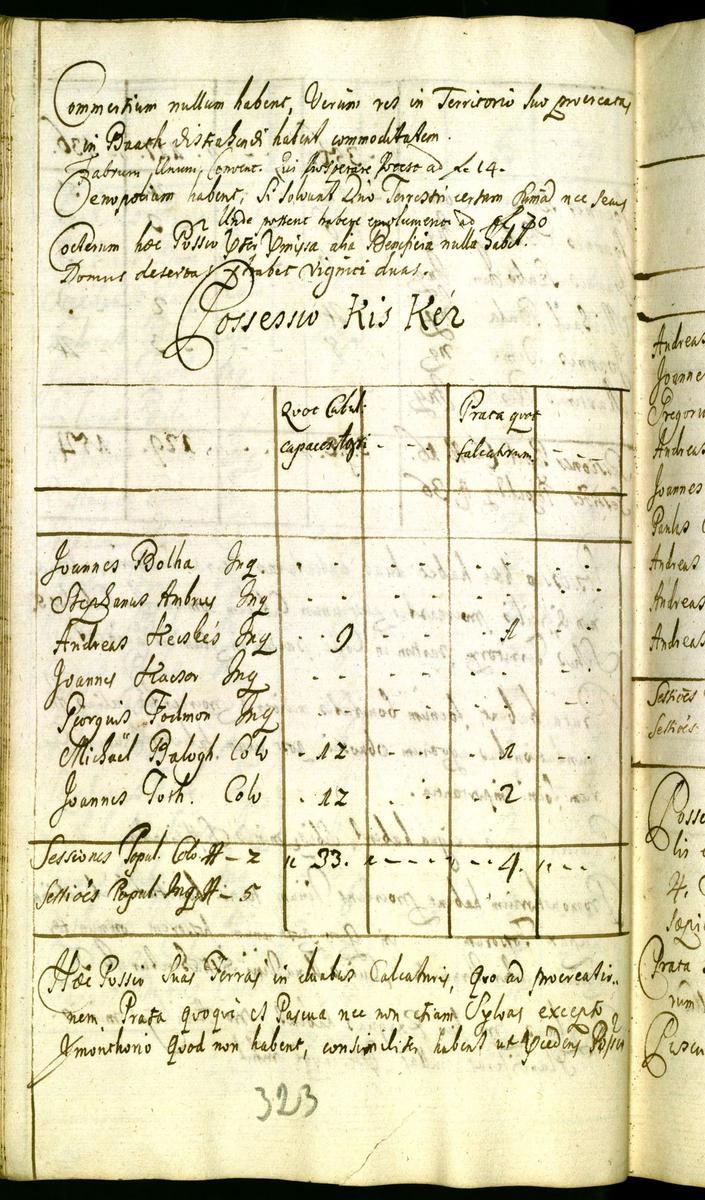 Commertium nullum habent, Verum res in Territorio suo procreatas
in Baath distrahendi habent commoditatem.
Fabrum Unum, Qui prosperare potest ad fl 14.
Oenopolium habent, si solvunt Dno Terrestri certam nec secus
Unde possent habere emolumenti ad fl 30
Coeterum hoc Possio alia Beneficia nulla habet.
Domus desertas habet viginti duas.
Possessio Kis Kér
Quot Cubul: Prata quot
capaces Agri falcatrum.
Joannes Bolha Inq.
Stephanus Ambrus Inq
Andreas Kecskés Inq 9 1
Joannes Kacsor Inq
Georgius Fodmon Inq
Michaël Balogh Colo 12 1
Joannes Toth. Colo 12 2
Sessiones Popul. Colo # - 2 33. 4.
Sessiões Popul. Inq # - 5
Haec Possio Suas Terras in duabus Calcaturis, quo ad procreatio-
nem Prata quoque et Pascua nec non etiam Sylvas excepto
quod non habent, consimiliter habent ut Possio
323
Andreas
Joannes
Gregorius
Andreas
Joannes
Paulus
Andreas
Andreas
Andreas
Sessiões
Sessiões
Prata